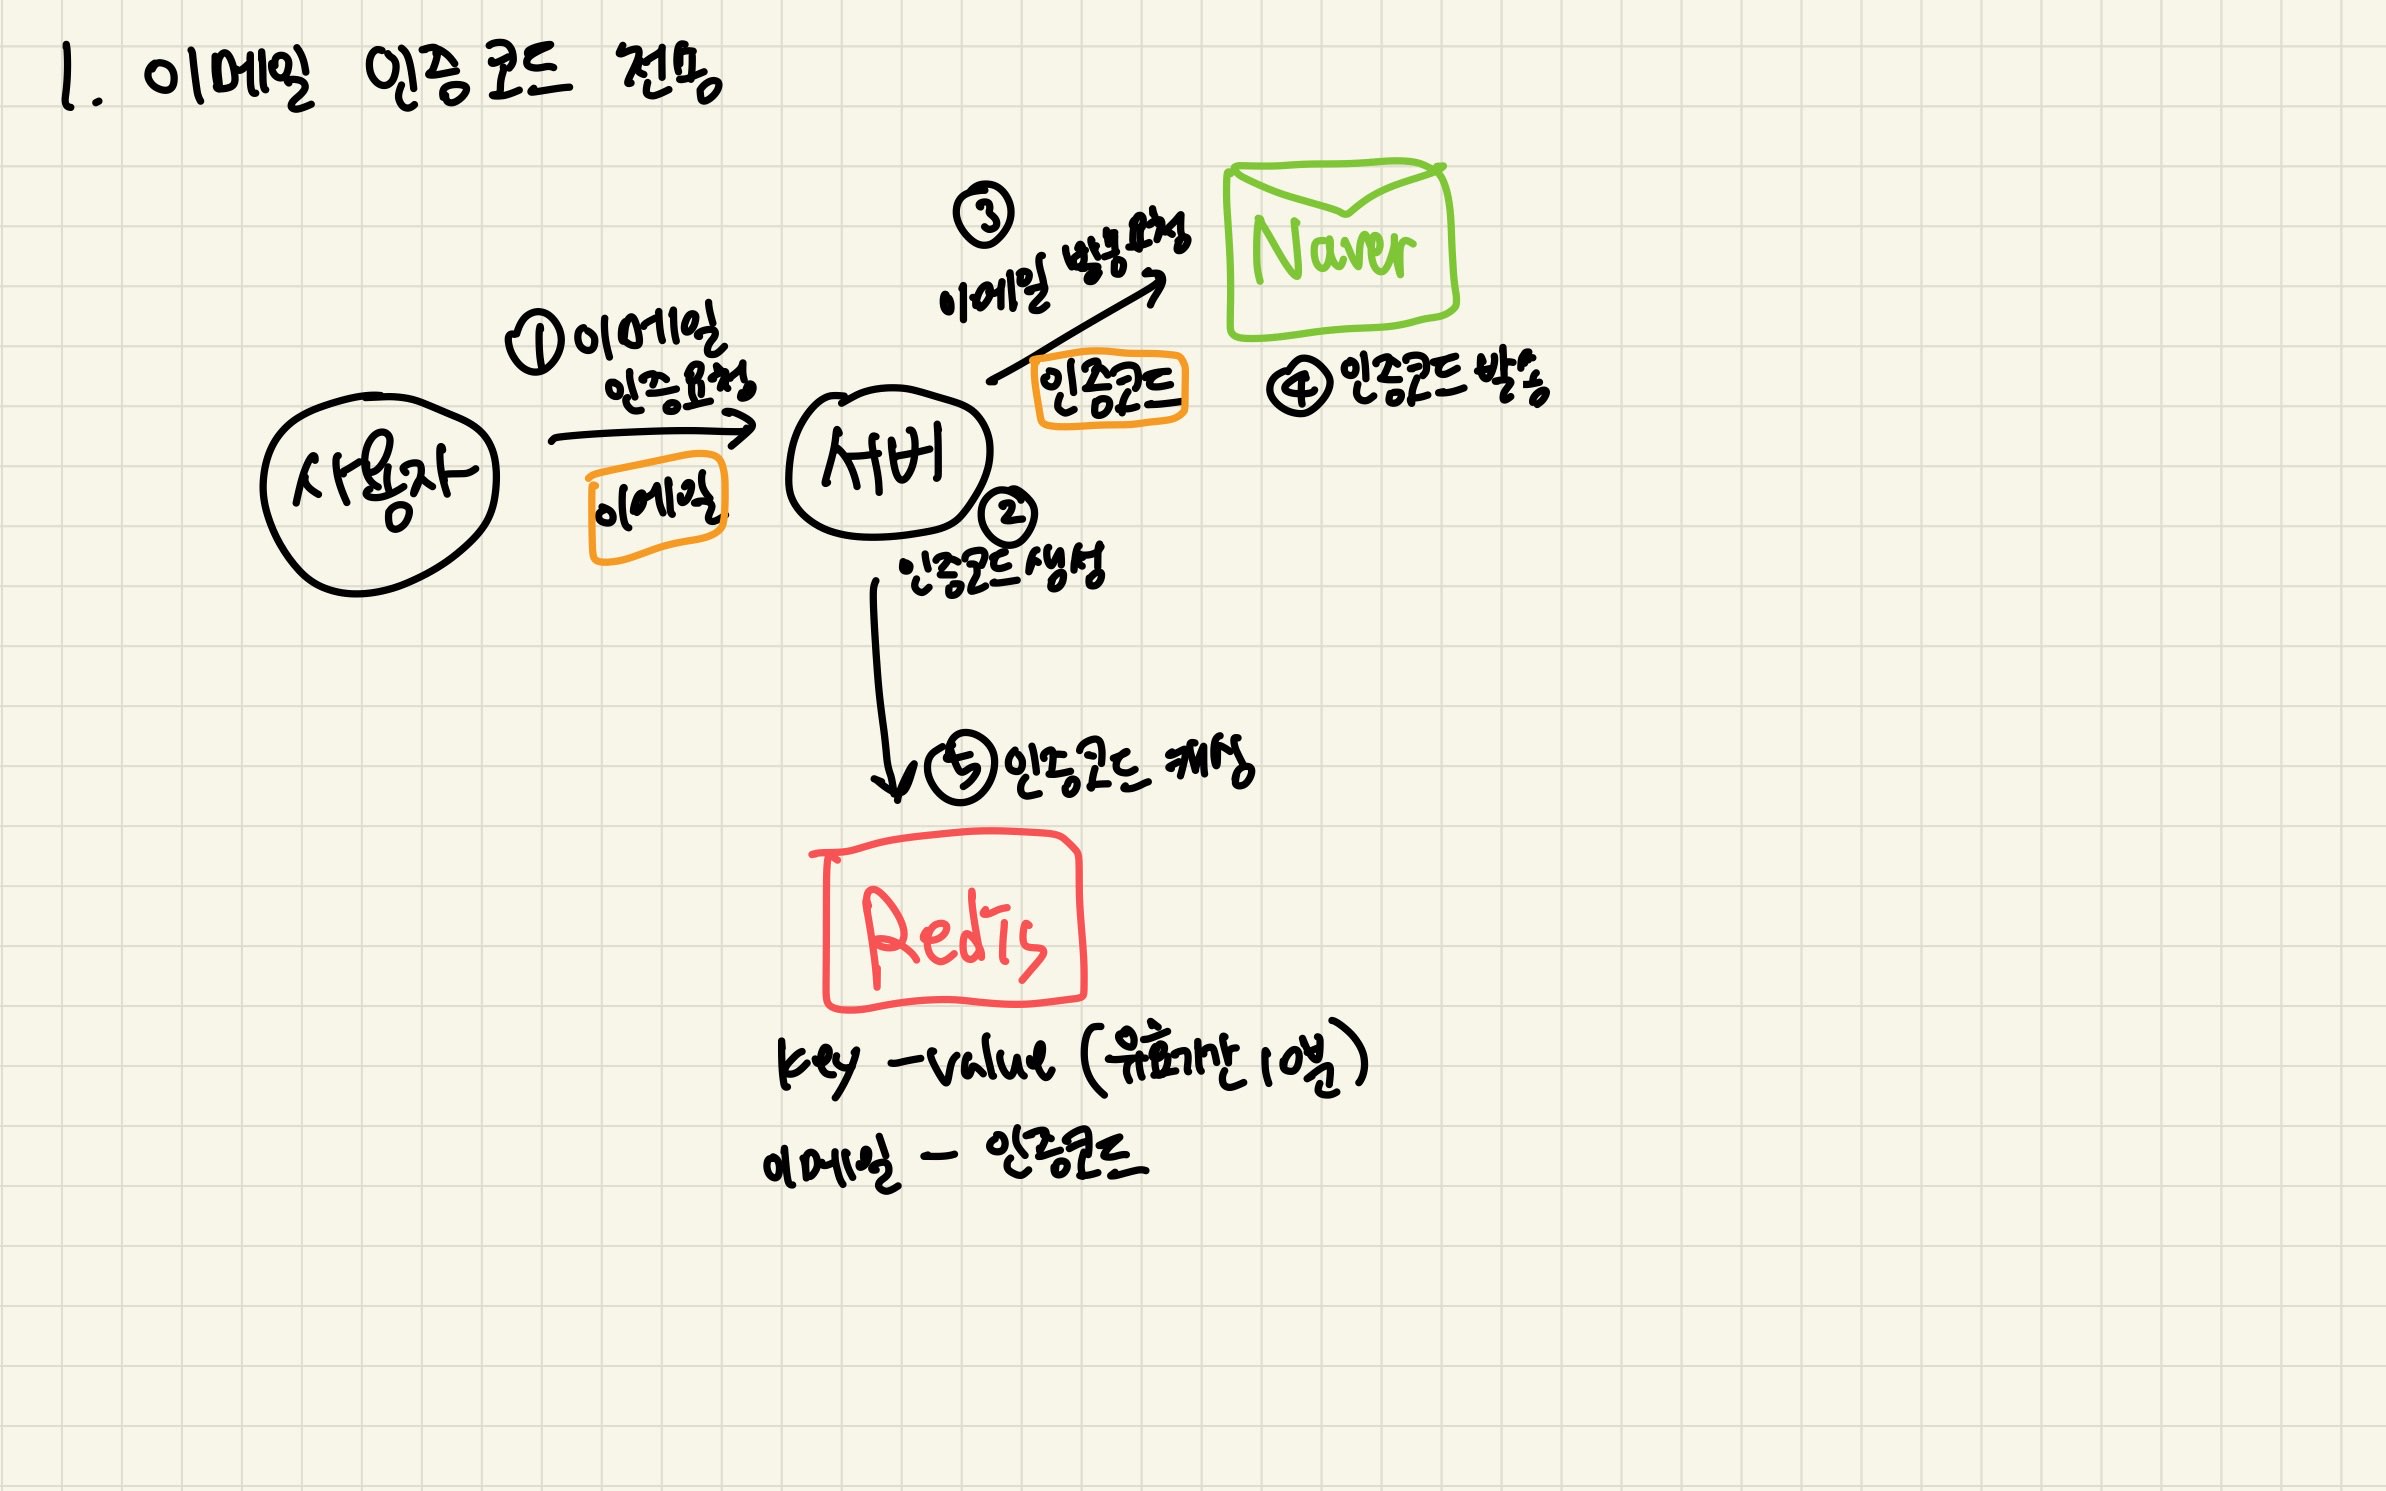 1. 이메일 인증 코드 전송
③
이메일 발송 요청
Naver
① 이메일
인증 요청
인증코드
④ 인증코드 발송
사용자
서버
이메일
②
인증코드 생성
⑤ 인증코드 저장
Redis
key - value (유효기간 10분)
이메일 - 인증코드